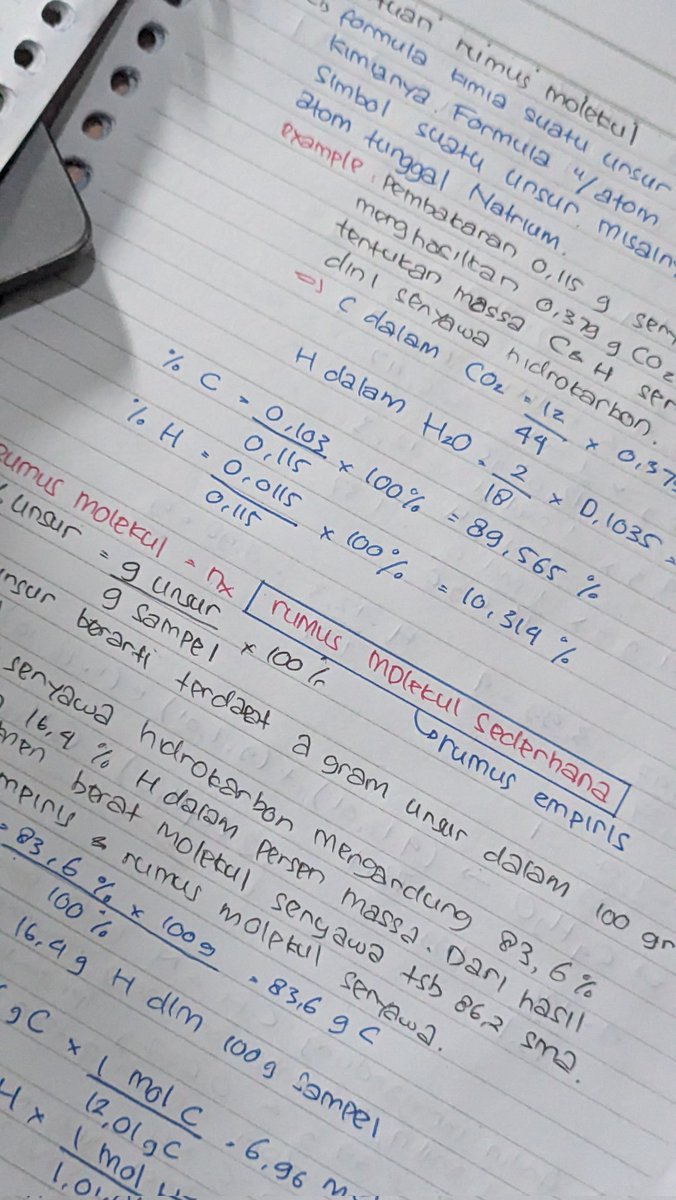 rumus molekul
formula kimia suatu unsur
kimianya. Formula u/ atom
simbol suatu unsur, misaln
atom tunggal Natrium.
example. Pembakaran 0,115 g sen
menghasilkan 0,379 g CO2
tentukan massa C & H
dlm senyawa hidrokarbon.
=> C dalam CO2 = 12/44 × 0,37
H dalam H2O = 2/18 × 0,1035 =
% C = 0,103/0,115 × 100% = 89,565 %
% H = 0,0115/0,115 × 100% = 10,314 %
rumus molekul = nx rumus molekul sederhana
↳ rumus empiris
unsur = g unsur/g sampel × 100%
unsur berarti terdapat a gram unsur dalam 100 gr
senyawa hidrokarbon mengandung 83,6%
16,4 % H dalam persen massa. Dari hasil
men berat molekul senyawa tsb 86,2 sma.
mpiris & rumus molekul senyawa.
= 83,6 % × 100g/100 % = 83,6 g C
16,4 g H dlm 100g sampel
gC × 1 mol C/12,01 gC = 6,96 m
H × 1 mol H/1,01